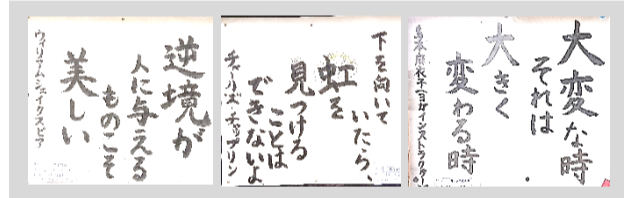 逆境が
人に与える
ものこそ
美しい
ウィリアムシェイクスピア
下を向いて
いたら、
虹を
見つける
ことは
できないよ
チャールズ・チャップリン
大変な時
それは
大きく
変わる時
本麻衣子(ヨガインストラクター)